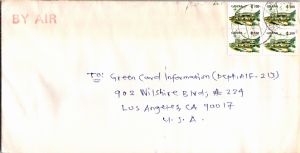 BY AIR
To: Green Card Information (Dept. A1F-213)
902 Wilshire Blvd, # 224
Los Angeles, CA 90017
U.S.A.
GHANA
GHANA
GHANA
GHANA